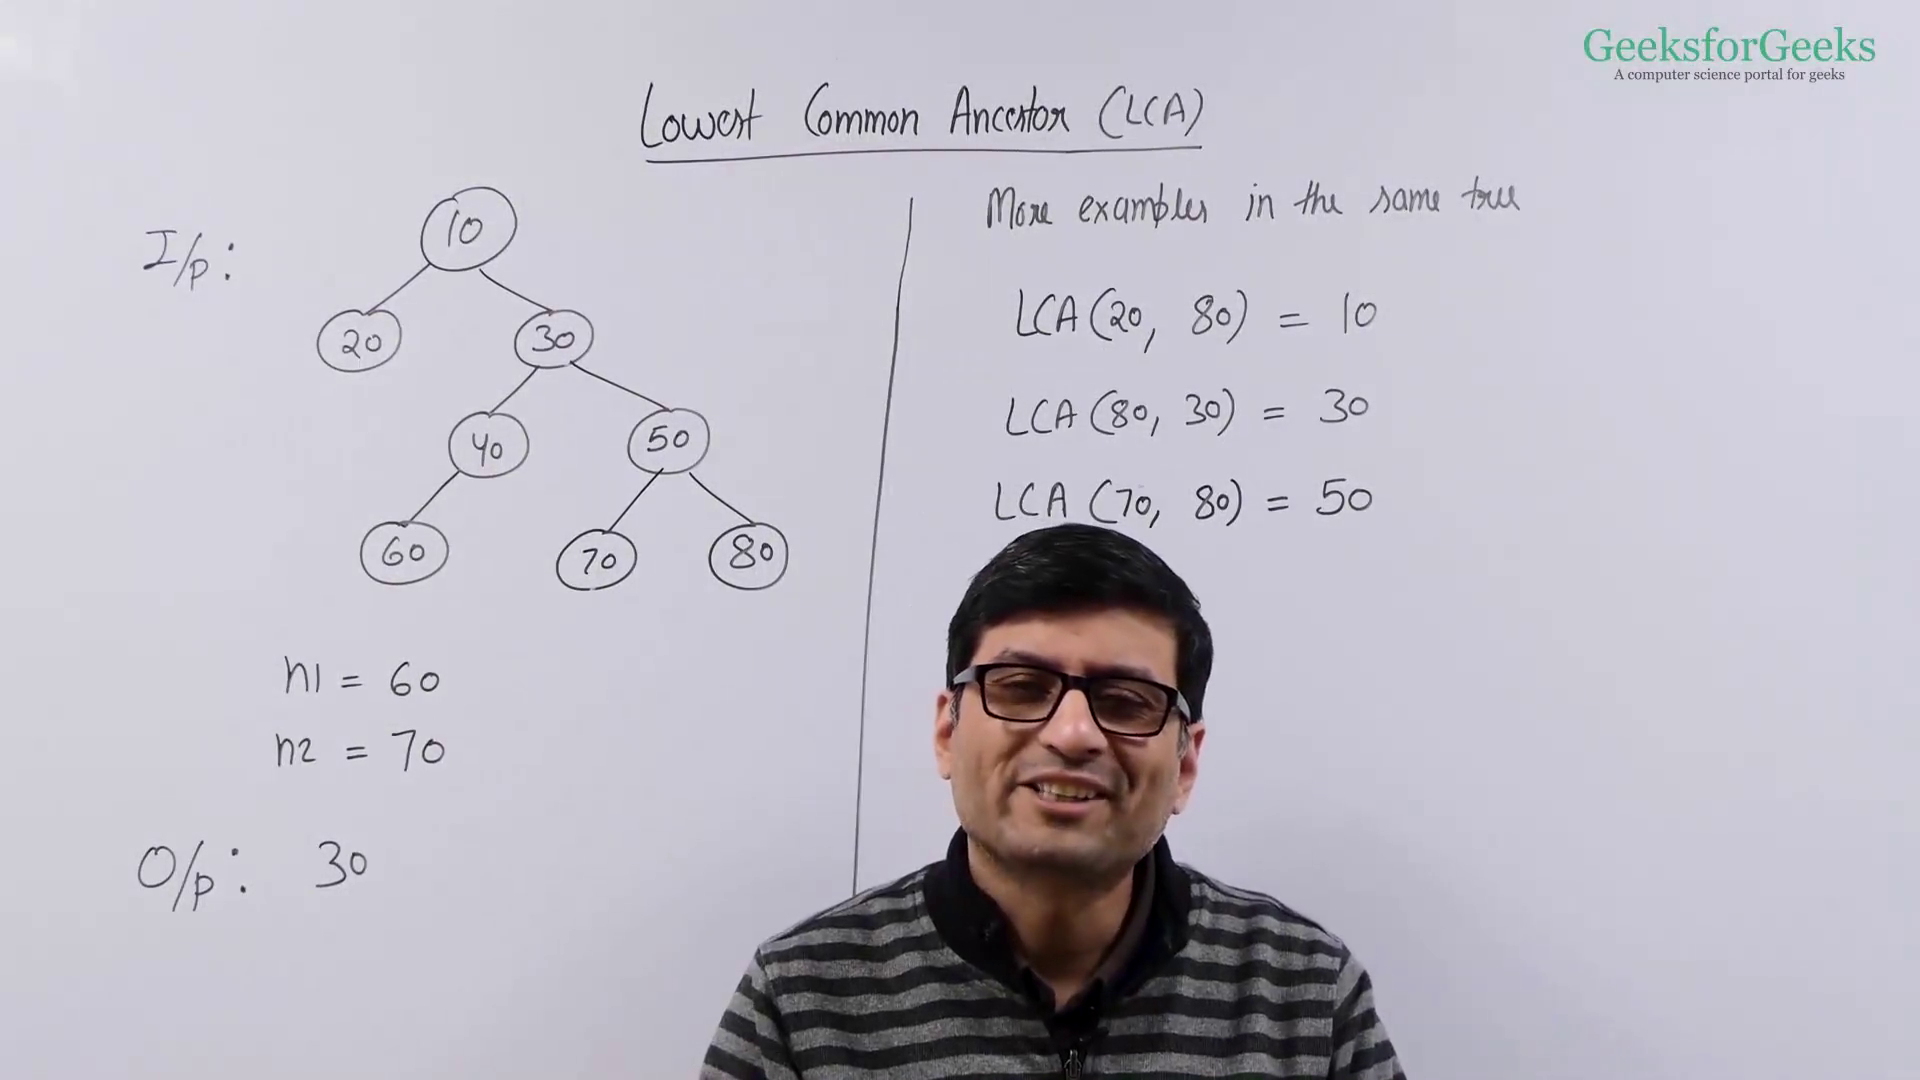 GeeksforGeeks
A computer science portal for geeks
Lowest Common Ancestor (LCA)
I/p:
10
20 30
40 50
60 70 80
n1 = 60
n2 = 70
O/p: 30
More examples in the same tree
LCA (20, 80) = 10
LCA (80, 30) = 30
LCA (70, 80) = 50